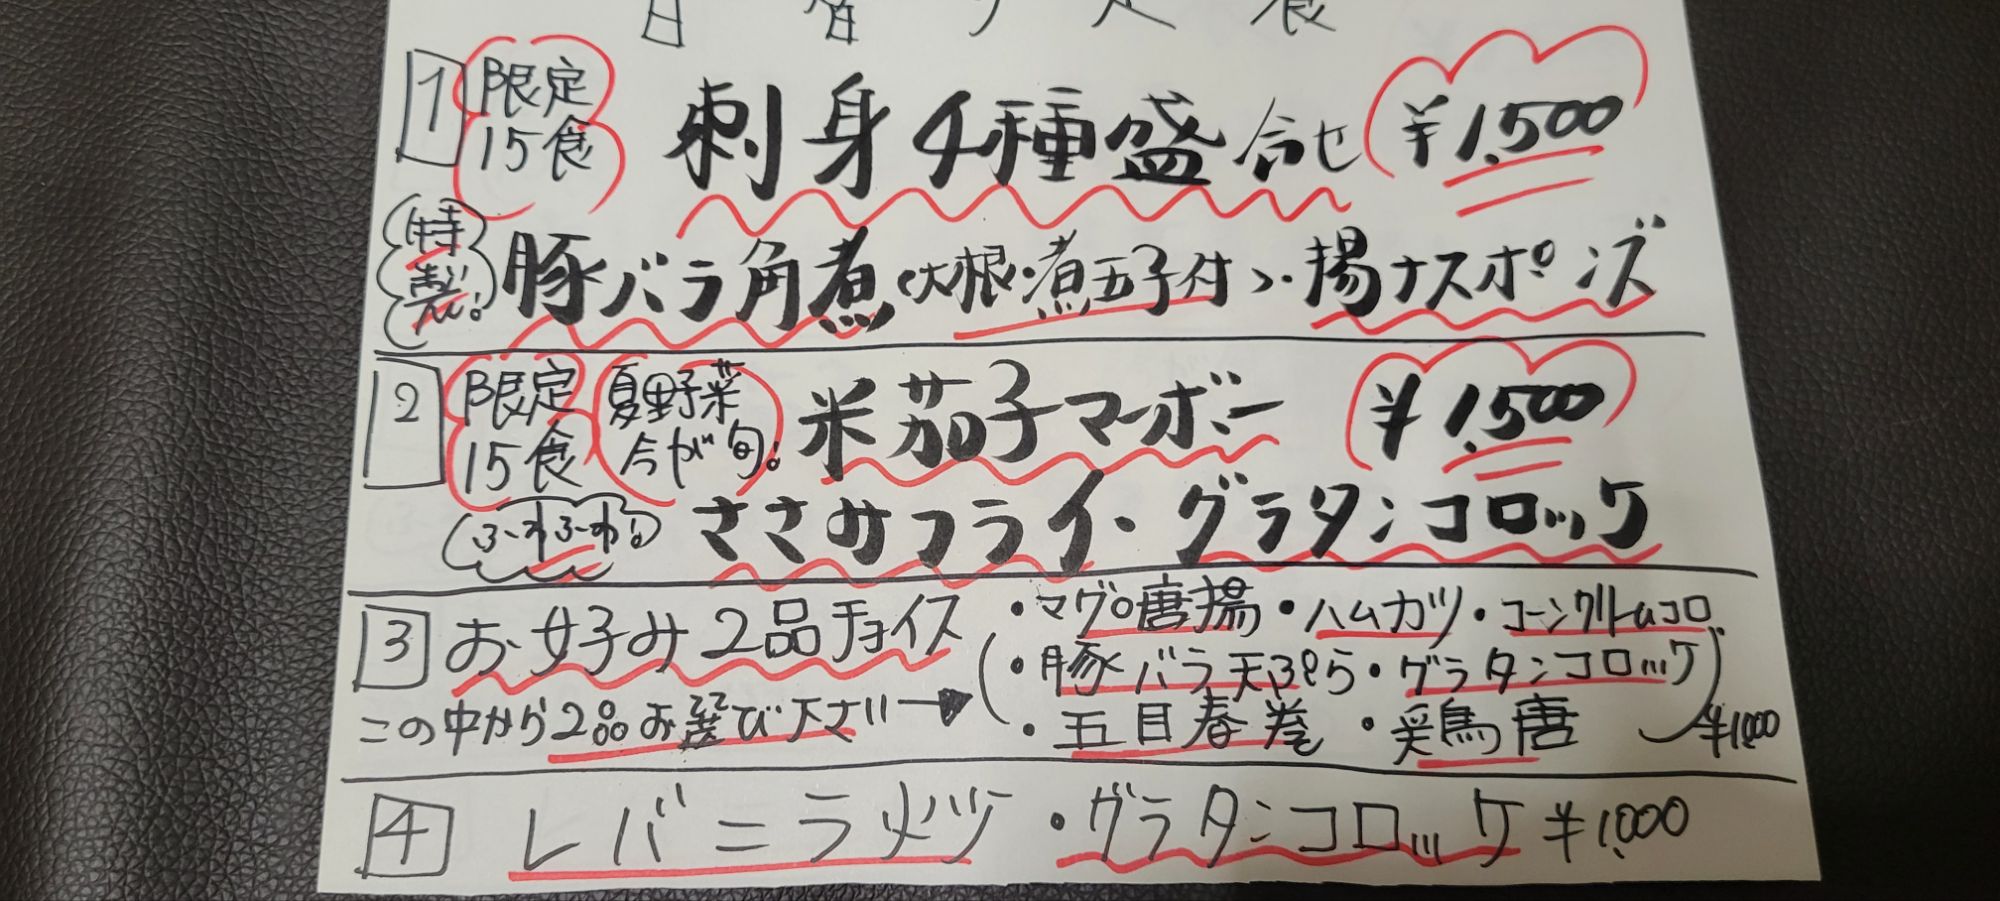 日替り定食
1 限定 15食 刺身4種盛合せ ¥1,500
特製! 豚バラ角煮(大根・煮玉子付)・揚ナスポンズ
2 限定 15食 夏野菜 今が旬! 米茄子マーボー ¥1,500
ふーわふーわ! ささみフライ・グラタンコロッケ
3 お好み2品チョイス
この中から2品お選び下さい→
・マグロ唐揚・ハムカツ・コーンクリームコロ
・豚バラ天ぷら・グラタンコロッケ
・五目春巻・若鳥唐 ¥1,000
4 レバニラ炒メ・グラタンコロッケ ¥1,000